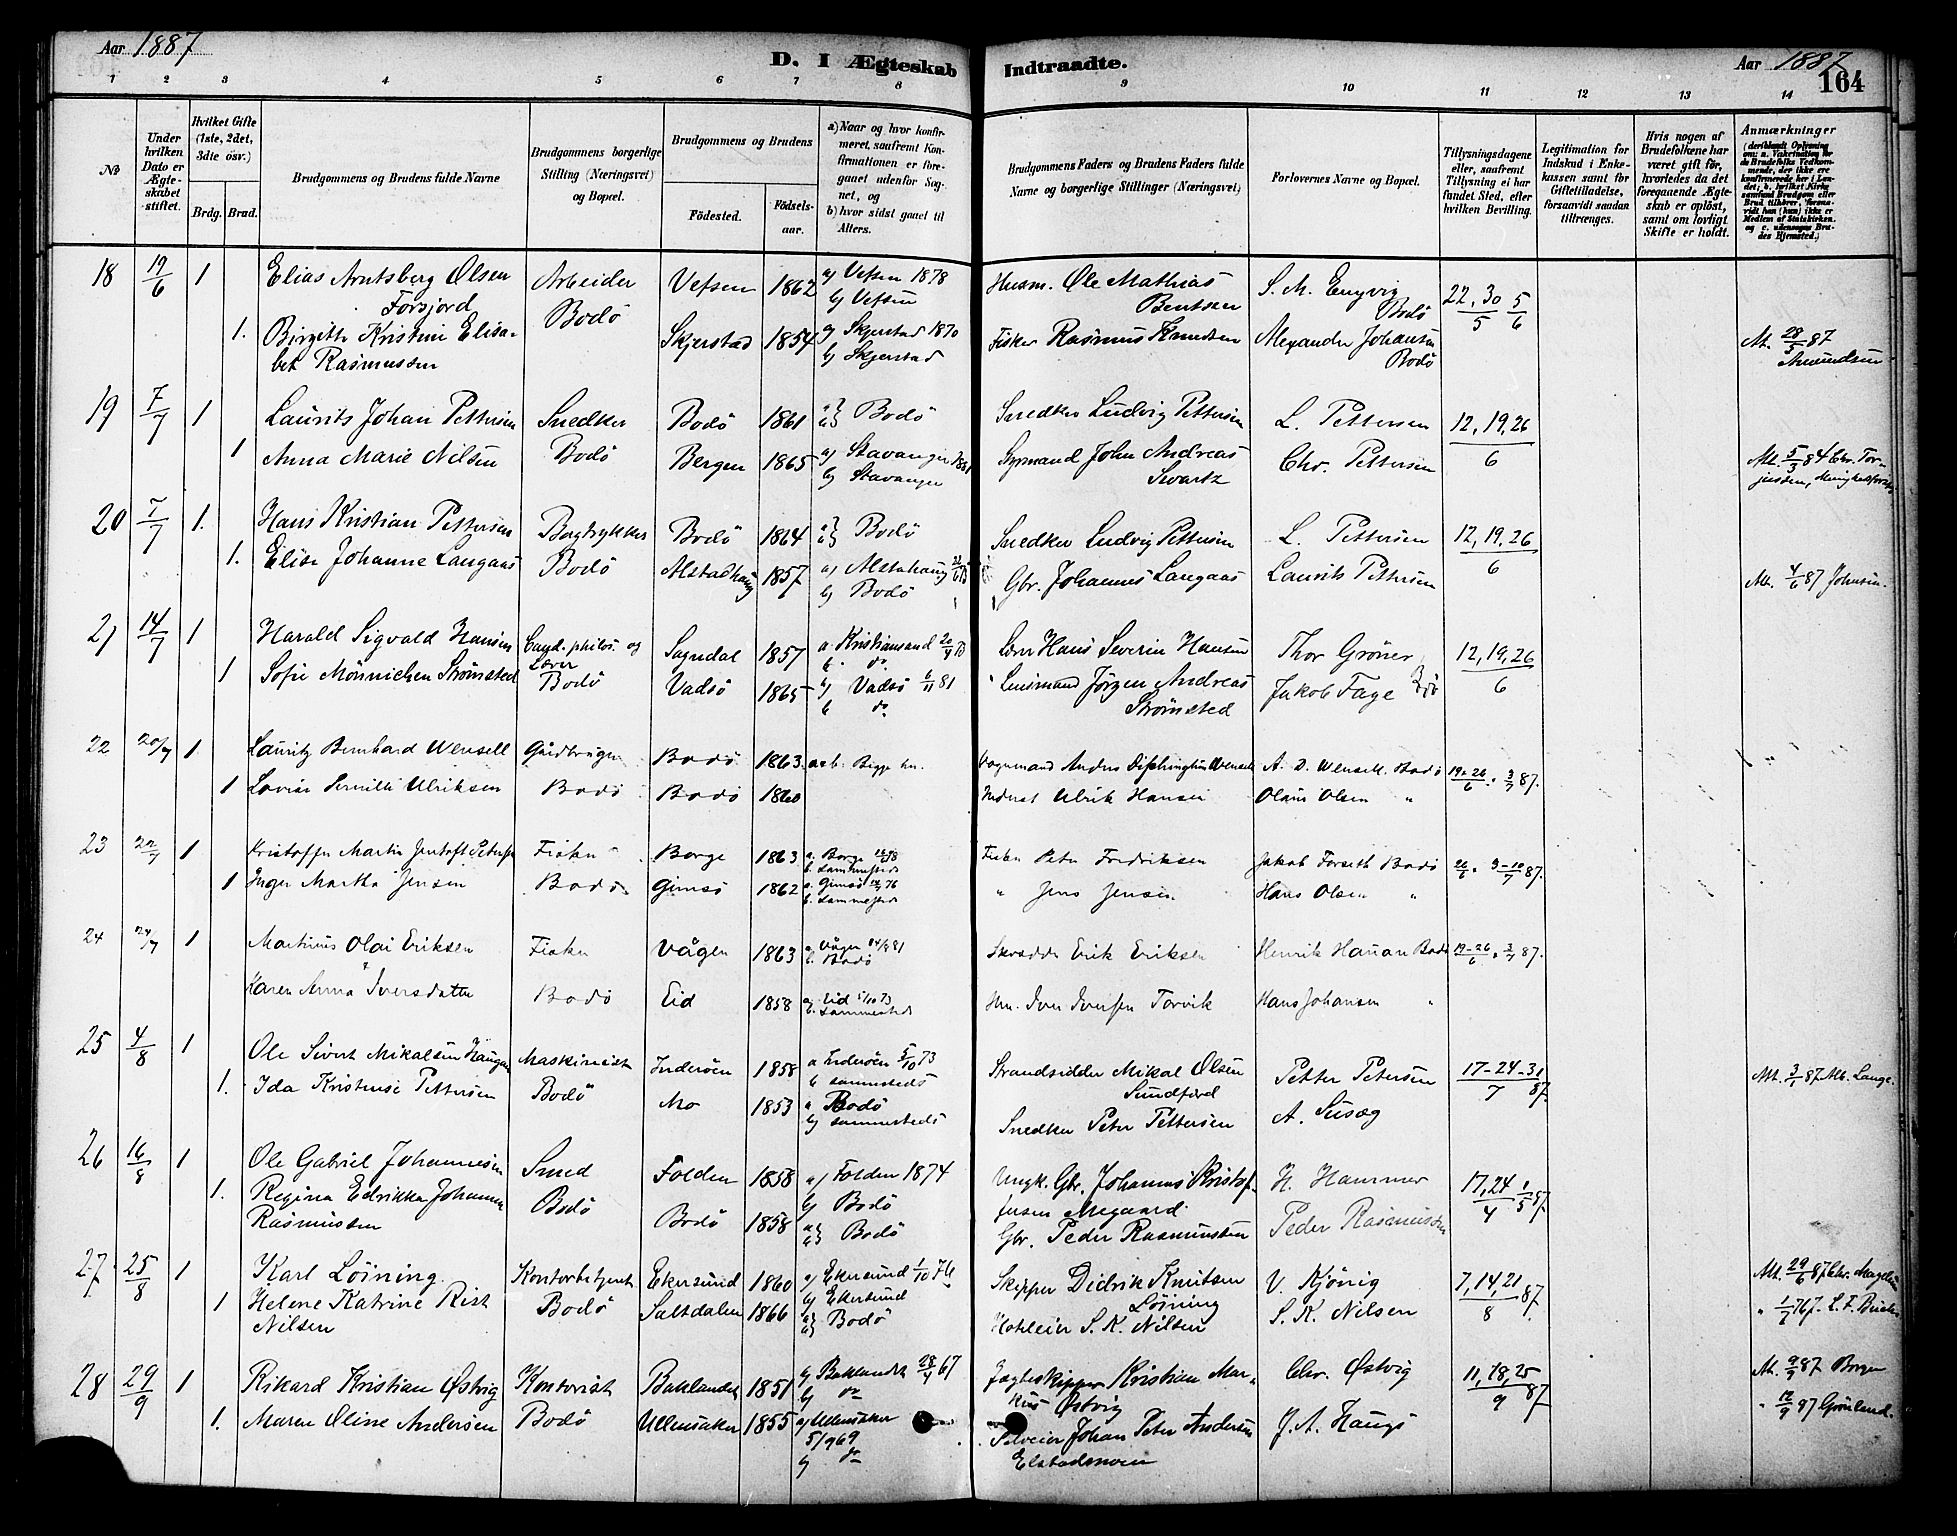 Aar 1887
D. I Ægteskab Indtraadte.
Aar 1887
164
1 2 3 4 5 6 7 8 9 10 11 12 13 14
№
Under hvilken Dato er Ægteskabet stiftet.
Hvilket Gifte (1ste, 2det, 3die osv.)
Brdg. Brud.
Brudgommens og Brudens fulde Navne
Brudgommens borgerlige Stilling (Næringsvei) og Bopæl.
Brudgommens og Brudens
Fødested.
Fødselsaar.
a) Naar og hvor konfirmeret, saafremt Konfirmationen er foregaaet udenfor Sognet, og
b) hvor sidst gaaet til Alters.
Brudgommens Faders og Brudens Faders fulde Navne og borgerlige Stillinger (Næringsvei)
Forlovernes Navne og Bopæl.
Tillysningsdagene eller, saafremt Tillysning ei har fundet Sted, efter hvilken Bevilling.
Legitimation for Indskud i Enkekassen samt for Giftetilladelse, forsaavidt saadan tiltrænges.
Hvis nogen af Brudefolkene har været gift før, hvorledes da det foregaaende Ægteskab er opløst, samt om lovligt Skifte er holdt.
Anmærkninger
18 19/6 1 Elias Arntsberg Olsen Forsjord Arbeider Bodö Vefsen 1862 a) Vefsen 1878 b) Vefsen Husm. Ole Mathias Bentsen S. M. Engvig Bodö 22, 30/5 5/6
1. Birgitte Kristine Elisabet Rasmussen Skjerstad 1854 a) Skjerstad 1870 b) Skjerstad Fisker Rasmus Knudsen Alexander Johansen Bodö At. 28/5 87 Amundsen
19 7/7 1 Laurits Johan Pettersen Snedker Bodö Bodö 1861 a) b) Bodö Snedker Ludvig Pettersen L. Pettersen 12, 19, 26/6
1 Anna Marie Nilsen Bergen 1865 a) Stavanger 1881 b) Stavanger Sømand John Andreas Swartz Chr. Pettersen At. 5/3 84 Chr. Torjusen,
20 7/7 1. Hans Kristian Pettersen Bogtrykker Bodö Bodö 1864 a) b) Bodö Snedker Ludvig Pettersen L. Pettersen 12, 19, 26/6
1. Elise Johanne Langaas Alstadhaug 1857 a) Alstahaug b) Bodö Gbr. Johannes Langaas Laurits Pettersen At. 4/6 87 Johnsen.
21 14/7 1 Harald Sigvald Hansen Cand. philos. og Lærer Bodö Sogndal 1857 a. Kristiansand b. do. Lærer Hans Severin Hansen Thor Grøner 12, 19, 26/6
1 Sofie Mönnichen Strømsted Vadsö 1865 a) Vadsö 6/11 81 b do. Lensmand Jørgen Andreas Strømsted Jakob Fage Bodö
22 20/7 1. Lauritz Bernhard Wensell Gårdbruger Bodö Bodö 1863 a & b. Begge her. Anders Wensell A. D. Wensell. Bodö 19-26/6 . 3/7 87.
1 Lovise Ulriksen Bodö 1860 Inderst Ulrik Hansen Olaus Olsen "
23 22/7 1 Kristoffer Martin Jentoft Petersen Fisker Bodö. Borge 1863 a. Borge b. Sammesteds Fisker Peter Fredriksen Jakob Forseth Bodö 26/6 . 3-10/7 87.
1 Inger Martha Jensen Gimsö 1862 a. Gimsö b. Sammesteds " Jens Jensen Hans Olsen "
24 24/7 1 Martinus Olai Eriksen Fisker Bodö Vågen 1863 a. Vågen 81 b. Bodö Skrædder Erik Eriksen Henrik Hauan Bodö 19-26/6 . 3/7 87.
Karen Anna Iversdatter Eid 1858 a. Eid 5/10 73 b. Sammesteds Iver Iversen Torvik Hans Johansen "
25 4/8 1 Ole Sivert Mikalsen Haugen Maskinist Bodö Inderöen 1858 a Inderöen 5/10 73 b sammesteds Strandsidder Mikal Olsen Sundfjord Petter Petersen 17-24-31/7 87.
1. Ida Kristense Pettersen Mo 1853 a. Bodö b) sammesteds Snedker Peter Pettersen A. Susæg At. 3/1 87 Lange.
26 16/8 1 Ole Gabriel Johannesen Smed Bodö Folden 1858 a) Folden 1874 b) Bodö Ungk. Gbr. Johannes Kristoffersen Megaard H. Hammer 17, 24/4 1/5 87.
1. Regina Edrikka Johanna Rasmussen Bodö 1858 a) b) Bodö Gbr. Peder Rasmussen Peder Rasmussen
27 25/8 1 Karl Löining Kontorbetjent Bodö Ekersund 1860 a) Ekersund 1/10 76 b) Ekersund Skipper Didrik Knutsen Löining V. Kjönig 7, 14, 21/8 87. At. 29/6 87 Chr. Magelsen
1 Helene Katrine Rist Nilsen Saltdalen 1866 a) b) Bodö Hotteleier S. K. Nilsen S. K. Nilsen
28 29/9 1 Rikard Kristian Østvig Kontorist Bodö Baklandet 1851 a) Baklandet b) do Jægteskipper Kristian Markus Østvig Chr. Østvig 11, 18, 25/9 87. At. 9/9 87 Borgen
1. Maren Oline Andersen Ullensaker 1855 a) Ullensaker 5/9 69 b) do Johan Peter Andersen J. A. Haugs " 12/9 87 Grønland.